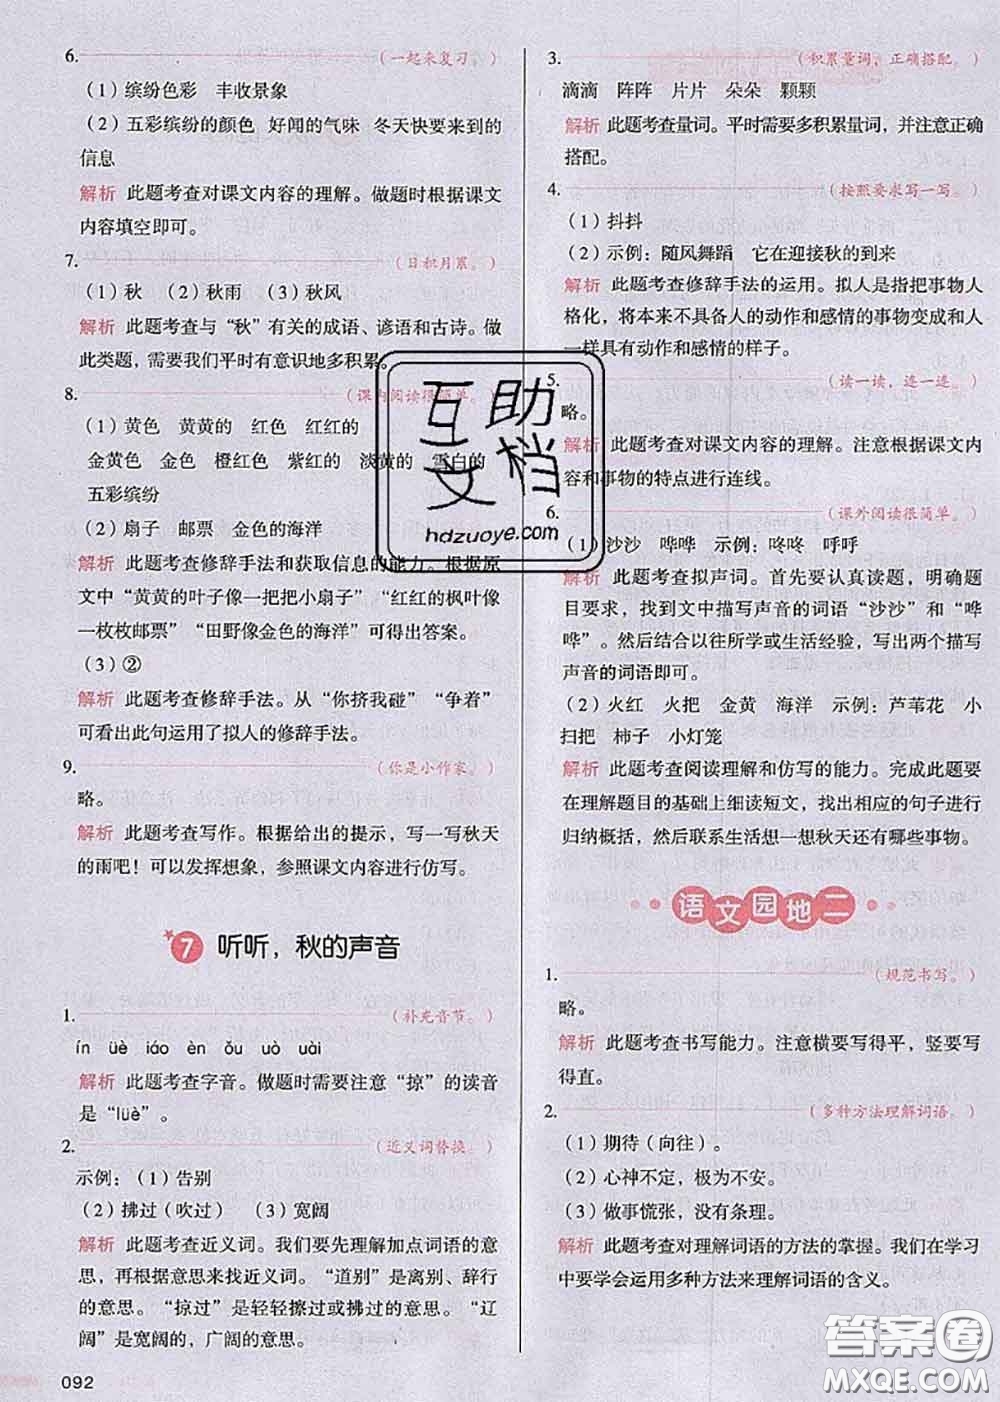 6.（一起来复习。）
（1）缤纷色彩 丰收景象
（2）五彩缤纷的颜色 好闻的气味 冬天快要来到的
信息
解析 此题考查对课文内容的理解。做题时根据课文
内容填空即可。
7.（日积月累。）
（1）秋 （2）秋雨 （3）秋风
解析 此题考查与“秋”有关的成语、谚语和古诗。做
此类题，需要我们平时有意识地多积累。
8.（课内阅读很简单。）
（1）黄色 黄黄的 红色 红红的
金黄色 金色 橙红色 紫红的 淡黄的 雪白的
五彩缤纷
（2）扇子 邮票 金色的海洋
解析 此题考查修辞手法和获取信息的能力。根据原
文中“黄黄的叶子像一把把小扇子”“红红的枫叶像
一枚枚邮票”“田野像金色的海洋”可得出答案。
（3）②
解析 此题考查修辞手法。从“你挤我碰”“争着”
可看出此句运用了拟人的修辞手法。
9.（你是小作家。）
略。
解析 此题考查写作。根据给出的提示，写一写秋天
的雨吧！可以发挥想象，参照课文内容进行仿写。
7 听听，秋的声音
1.（补充音节。）
ín üè iáo èn ǒu uò uài
解析 此题考查字音。做题时需要注意“掠”的读音
是“lüè”。
2.（近义词替换。）
示例：（1）告别
（2）拂过（吹过） （3）宽阔
解析 此题考查近义词。我们要先理解加点词语的意
思，再根据意思来找近义词。“道别”是离别、辞行
的意思。“掠过”是轻轻擦过或拂过的意思。“辽
阔”是宽阔的，广阔的意思。
092
3.（积累量词，正确搭配。）
滴滴 阵阵 片片 朵朵 颗颗
解析 此题考查量词。平时需要多积累量词，并注意正确
搭配。
4.（按照要求写一写。）
（1）抖抖
（2）示例：随风舞蹈 它在迎接秋的到来
解析 此题考查修辞手法的运用。拟人是指把事物人
格化，将本来不具备人的动作和感情的事物变成和人
一样具有动作和感情的样子。
5.（读一读，连一连。）
略。
解析 此题考查对课文内容的理解。注意根据课文内
容和事物的特点进行连线。
6.（课外阅读很简单。）
（1）沙沙 哗哗 示例：咚咚 呼呼
解析 此题考查拟声词。首先要认真读题，明确题
目要求，找到文中描写声音的词语“沙沙”和“哗
哗”。然后结合以往所学或生活经验，写出两个描写
声音的词语即可。
（2）火红 火把 金黄 海洋 示例：芦苇花 小
扫把 柿子 小灯笼
解析 此题考查阅读理解和仿写的能力。完成此题要
在理解题目的基础上细读短文，找出相应的句子进行
归纳概括，然后联系生活想一想秋天还有哪些事物。
语文园地二
1.（规范书写。）
略。
解析 此题考查书写能力。注意横要写得平，竖要写
得直。
2.（多种方法理解词语。）
（1）期待（向往）。
（2）心神不定，极为不安。
（3）做事慌张，没有条理。
解析 此题考查对理解词语的方法的掌握。我们在学习
中要学会运用多种方法来理解词语的含义。
互助
文档
hdzuoye.com
答案圈
MXQE.COM